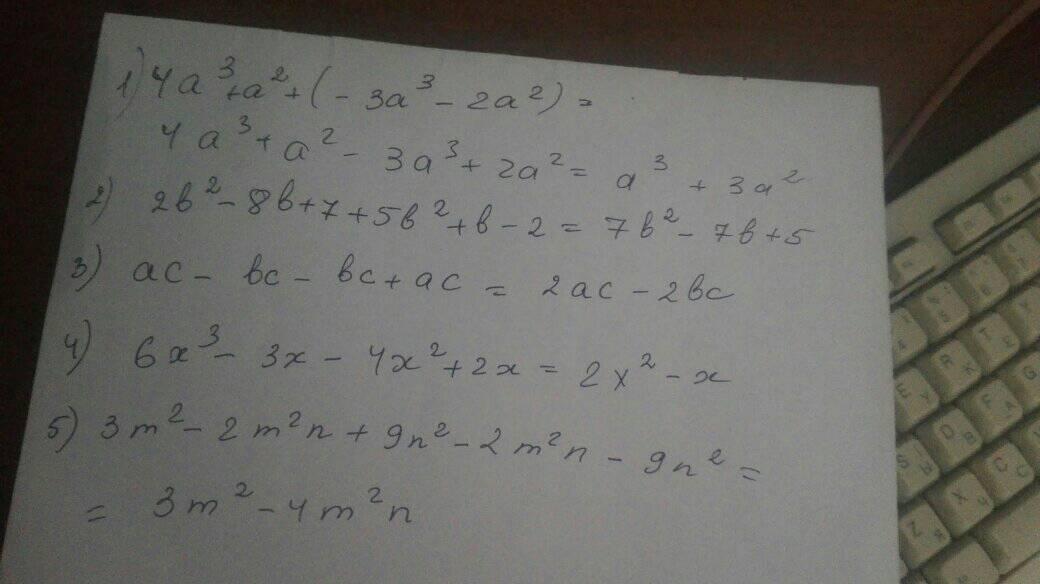 1) 4a³+a²+(-3a³-2a²)=
4a³+a²-3a³+2a²=a³+3a²
2) 2b²-8b+7+5b²+b-2=7b²-7b+5
3) ac-bc-bc+ac=2ac-2bc
4) 6x³-3x-4x²+2x=2x²-x
5) 3m²-2m²n+9n²-2m²n-9n²=
=3m²-4m²n